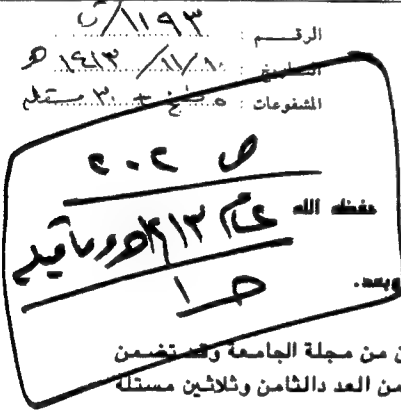 الرقم : ١١٩٣/ن
التاريخ : ١٤١٣/١١/١٠ هـ
المشفوعات : ٥ نسخ + ٣٠ مستله
ص ٢٠٢
حفظه الله
عام ١٤١٣هـ وما قبله
وبعد.
ن من مجلة الجامعة وقد تضمن
من العد دالثامن وثلاثين مستلة